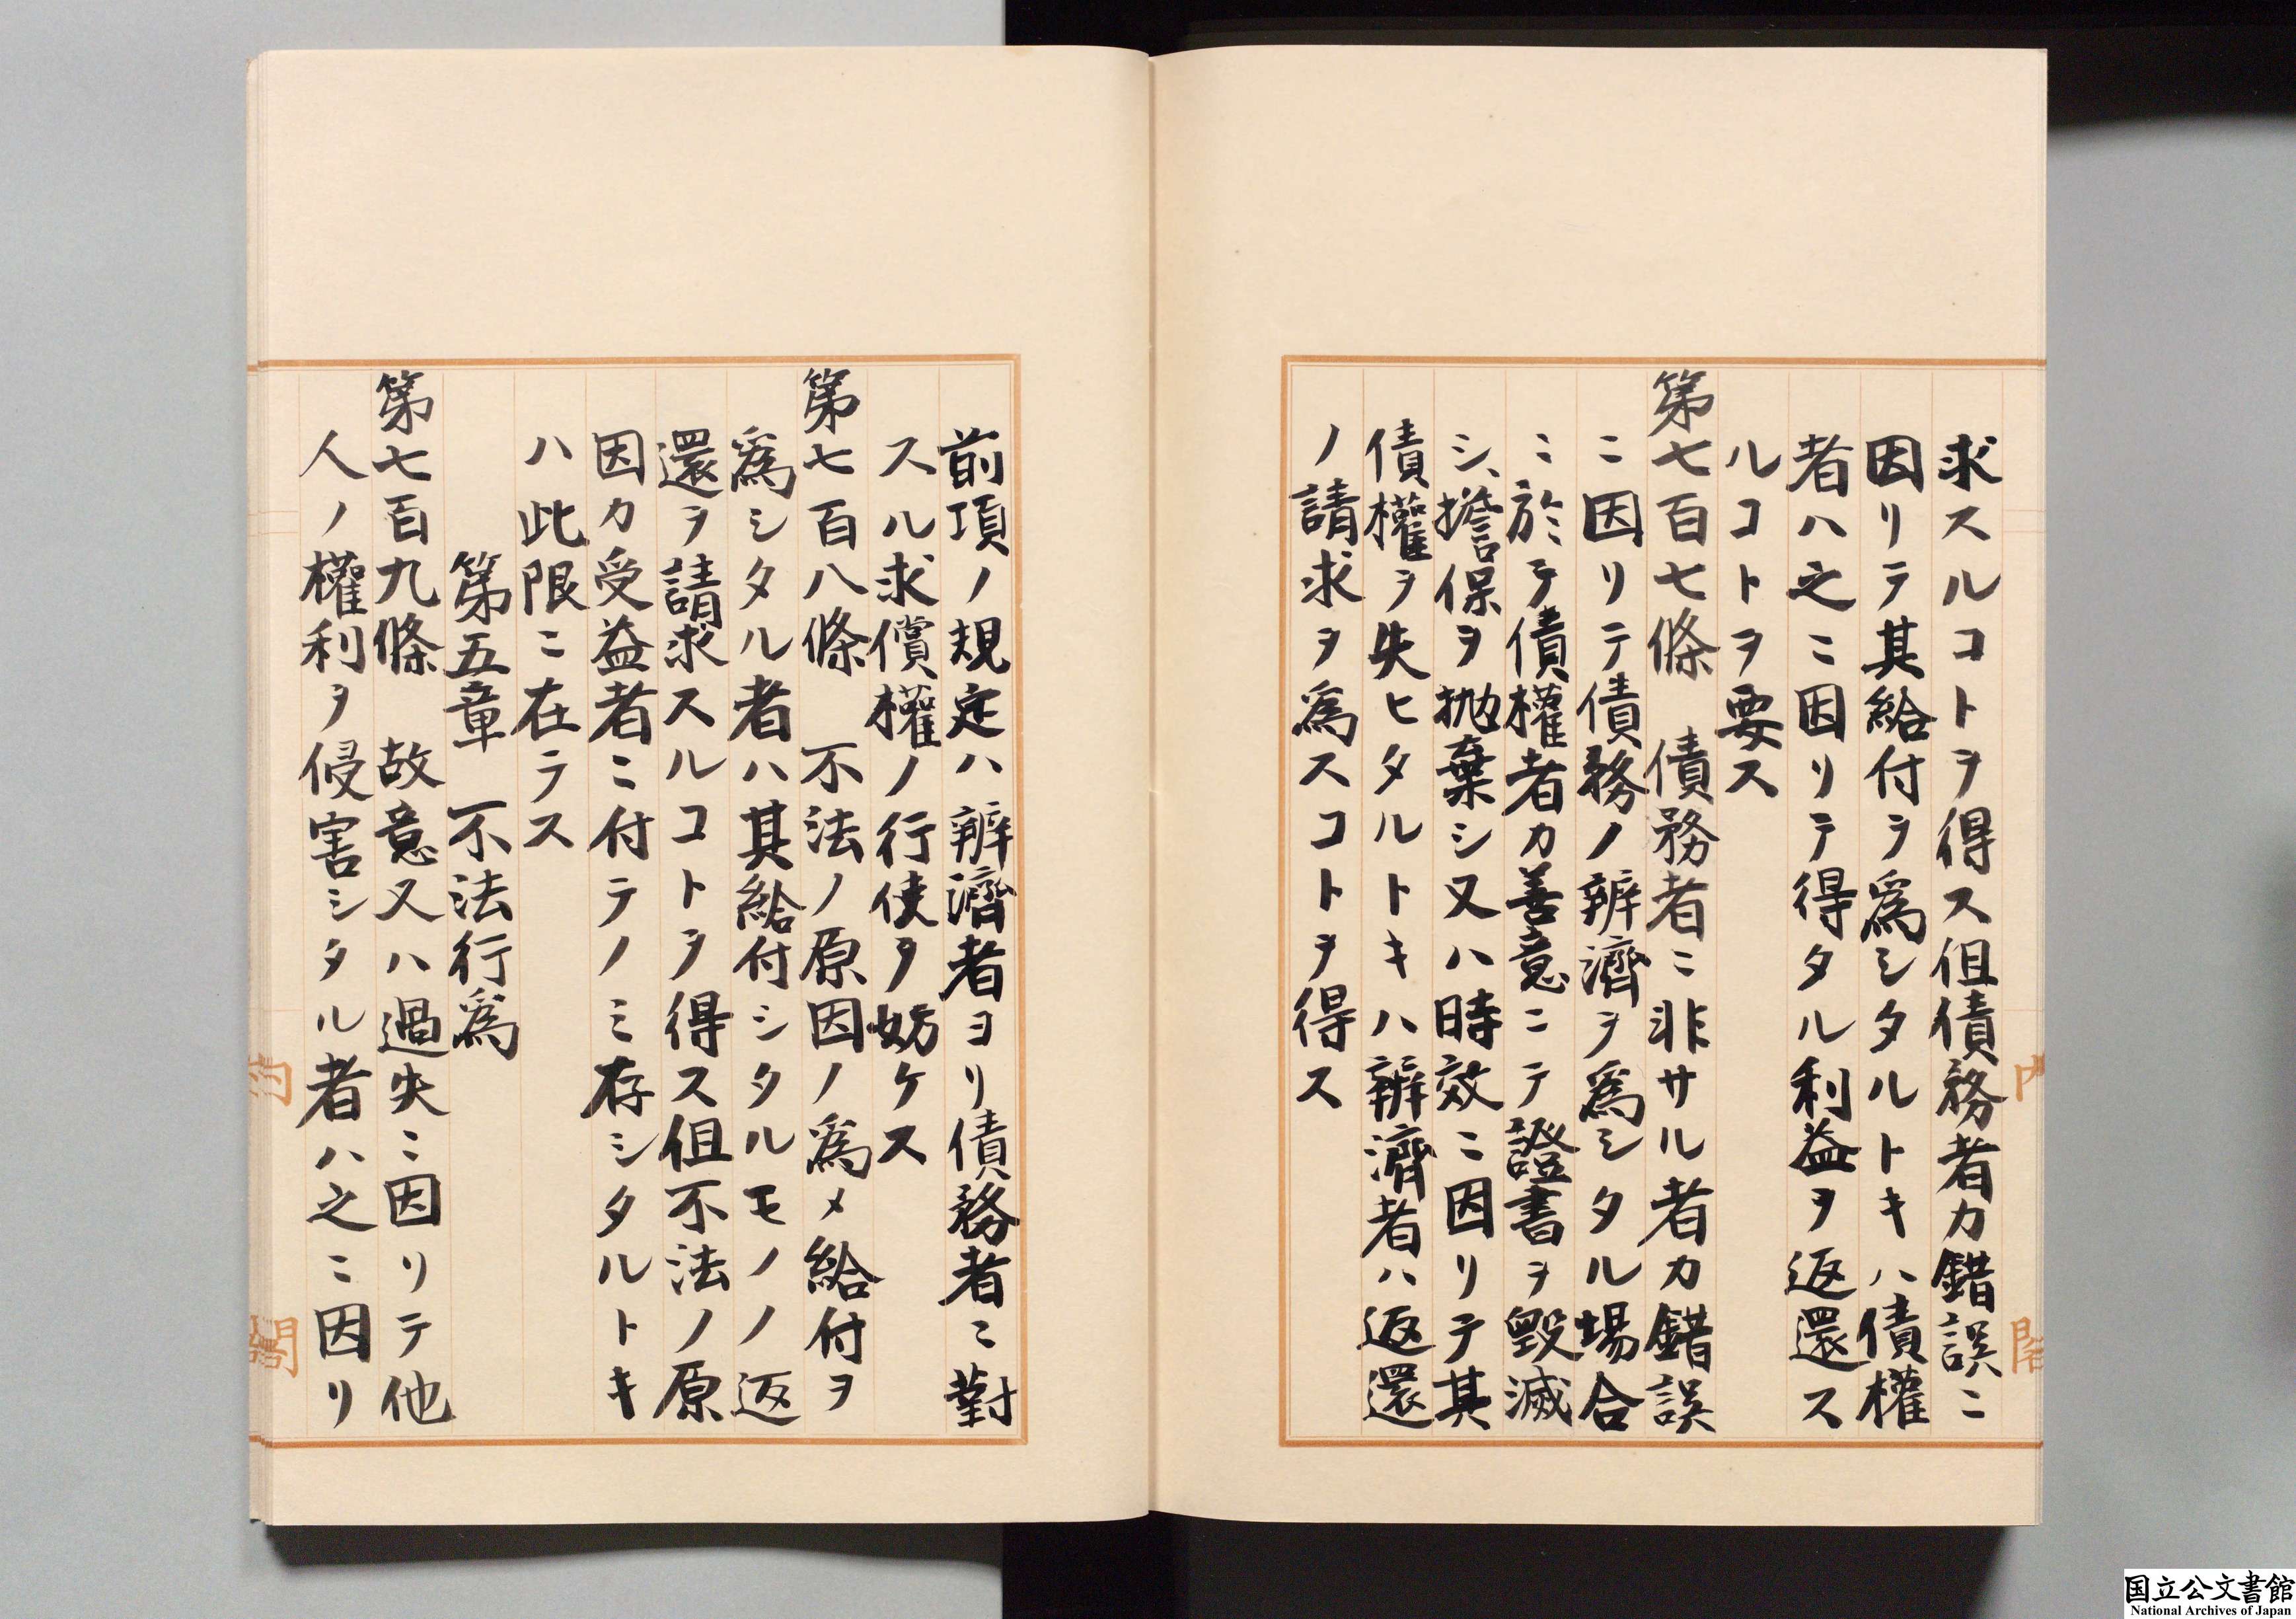 求スルコトヲ得ス但債務者カ錯誤ニ
因リテ其給付ヲ爲シタルトキハ債權
者ハ之ニ因リテ得タル利益ヲ返還ス
ルコトヲ要ス
第七百七條　債務者ニ非サル者カ錯誤
ニ因リテ債務ノ辨濟ヲ爲シタル場合
ニ於テ債權者カ善意ニテ證書ヲ毀滅
シ、擔保ヲ抛棄シ又ハ時效ニ因リテ其
債權ヲ失ヒタルトキハ辨濟者ハ返還
ノ請求ヲ爲スコトヲ得ス
前項ノ規定ハ辨濟者ヨリ債務者ニ對
スル求償權ノ行使ヲ妨ケス
第七百八條　不法ノ原因ノ爲メ給付ヲ
爲シタル者ハ其給付シタルモノノ返
還ヲ請求スルコトヲ得ス但不法ノ原
因カ受益者ニ付テノミ存シタルトキ
ハ此限ニ在ラス
第五章　不法行爲
第七百九條　故意又ハ過失ニ因リテ他
人ノ權利ヲ侵害シタル者ハ之ニ因リ
国立公文書館
National Archives of Japan